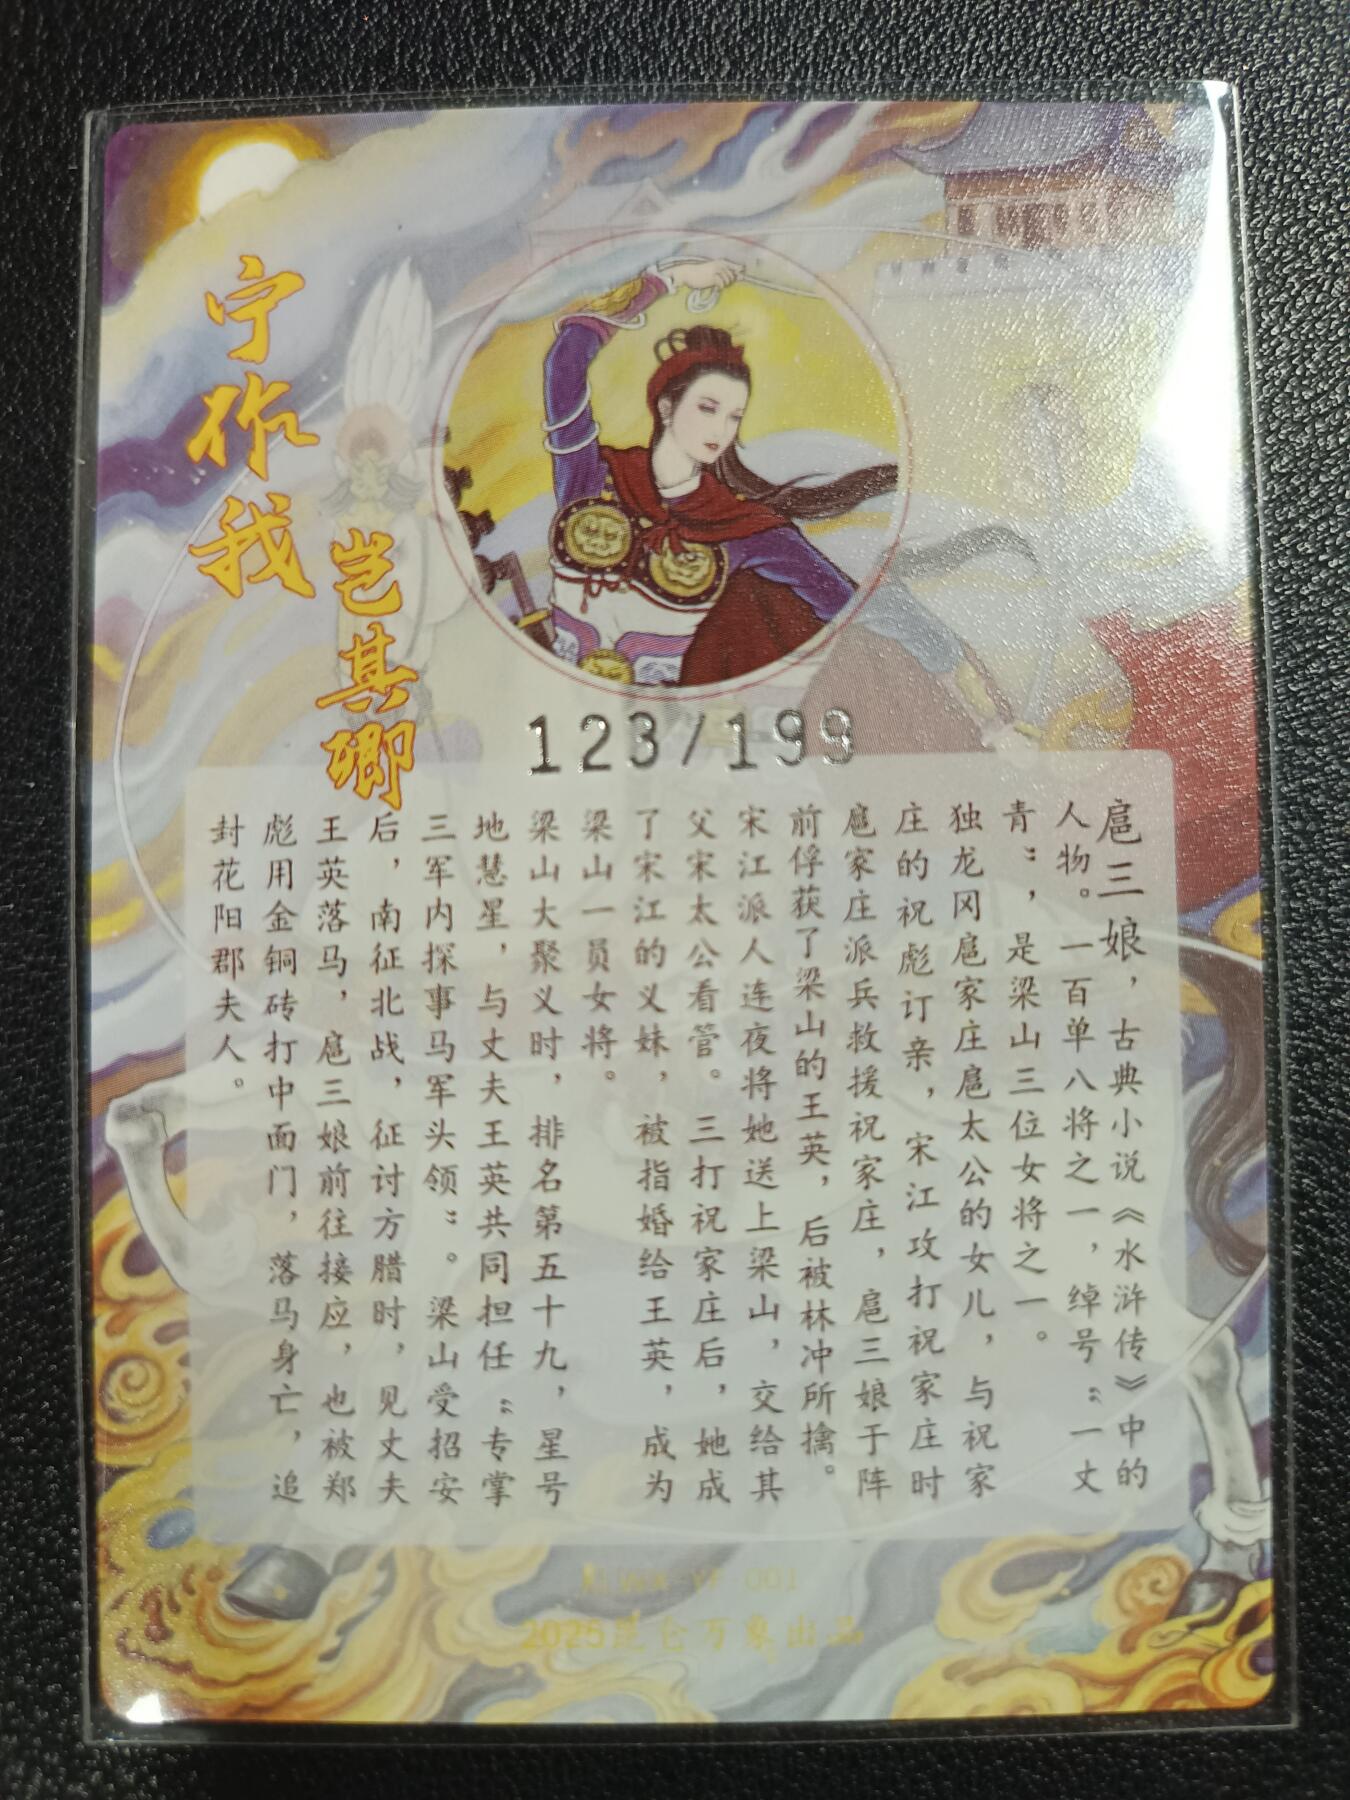 宁作我
岂其卿
123/199
扈三娘，古典小说《水浒传》中的
人物。一百单八将之一，绰号“一丈
青”，是梁山三位女将之一。
独龙冈扈家庄扈太公的女儿，与祝家
庄的祝彪订亲，宋江攻打祝家庄时
扈家庄派兵救援祝家庄，扈三娘于阵
前俘获了梁山的王英，后被林冲所擒。
宋江派人连夜将她送上梁山，交给其
父宋太公看管。三打祝家庄后，她成
了宋江的义妹，被指婚给王英，成为
梁山一员女将。
梁山大聚义时，排名第五十九，星号
地慧星，与丈夫王英共同担任“专掌
三军内探事马军头领”。梁山受招安
后，南征北战，征讨方腊时，见丈夫
王英落马，扈三娘前往接应，也被郑
彪用金铜砖打中面门，落马身亡，追
封花阳郡夫人。
001
2025昆仑万象出品